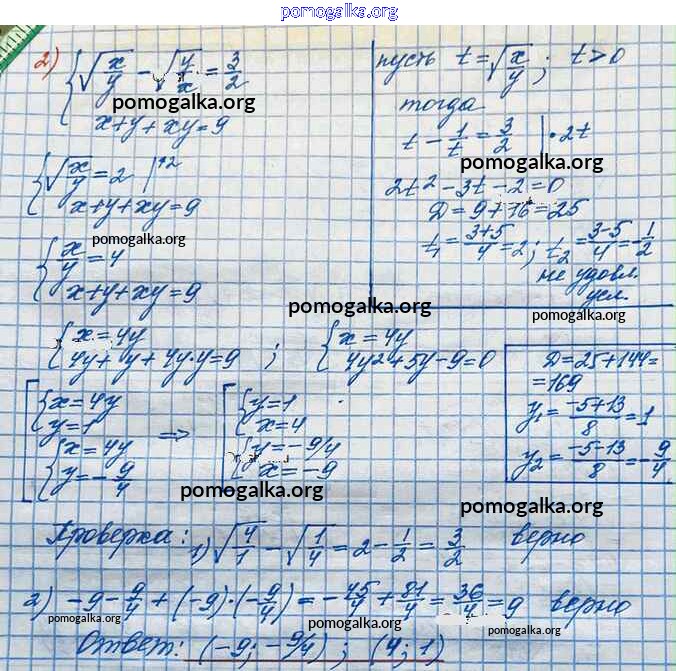 pomogalka.org
2) { √(x/y) - √(y/x) = 3/2
x+y+xy=9
pomogalka.org
{ √(x/y) = 2 |^2
x+y+xy=9
pomogalka.org
{ x/y = 4
x+y+xy=9
пусть t = √(x/y) ; t>0
тогда
t - 1/t = 3/2 | ·2t
pomogalka.org
2t²-3t-2=0
D=9+16=25
t₁=(3+5)/4=2; t₂=(3-5)/4=-1/2
не удовл.
усл.
pomogalka.org
pomogalka.org
{ x=4y
4y+y+4y·y=9 ;
{ x=4y
4y²+5y-9=0
D=25+144=
=169
y₁=(-5+13)/8=1
y₂=(-5-13)/8=-9/4
[ { x=4y
y=1
{ x=4y
y=-9/4
=>
[ { y=1
x=4
{ y=-9/4
x=-9
pomogalka.org
pomogalka.org
Проверка: 1) √(4/1) - √(1/4) = 2 - 1/2 = 3/2 верно
2) -9-9/4+(-9)·(-9/4)=-45/4+81/4=36/4=9 верно
pomogalka.org
pomogalka.org
pomogalka.org
Ответ: (-9; -9/4) ; (4; 1)